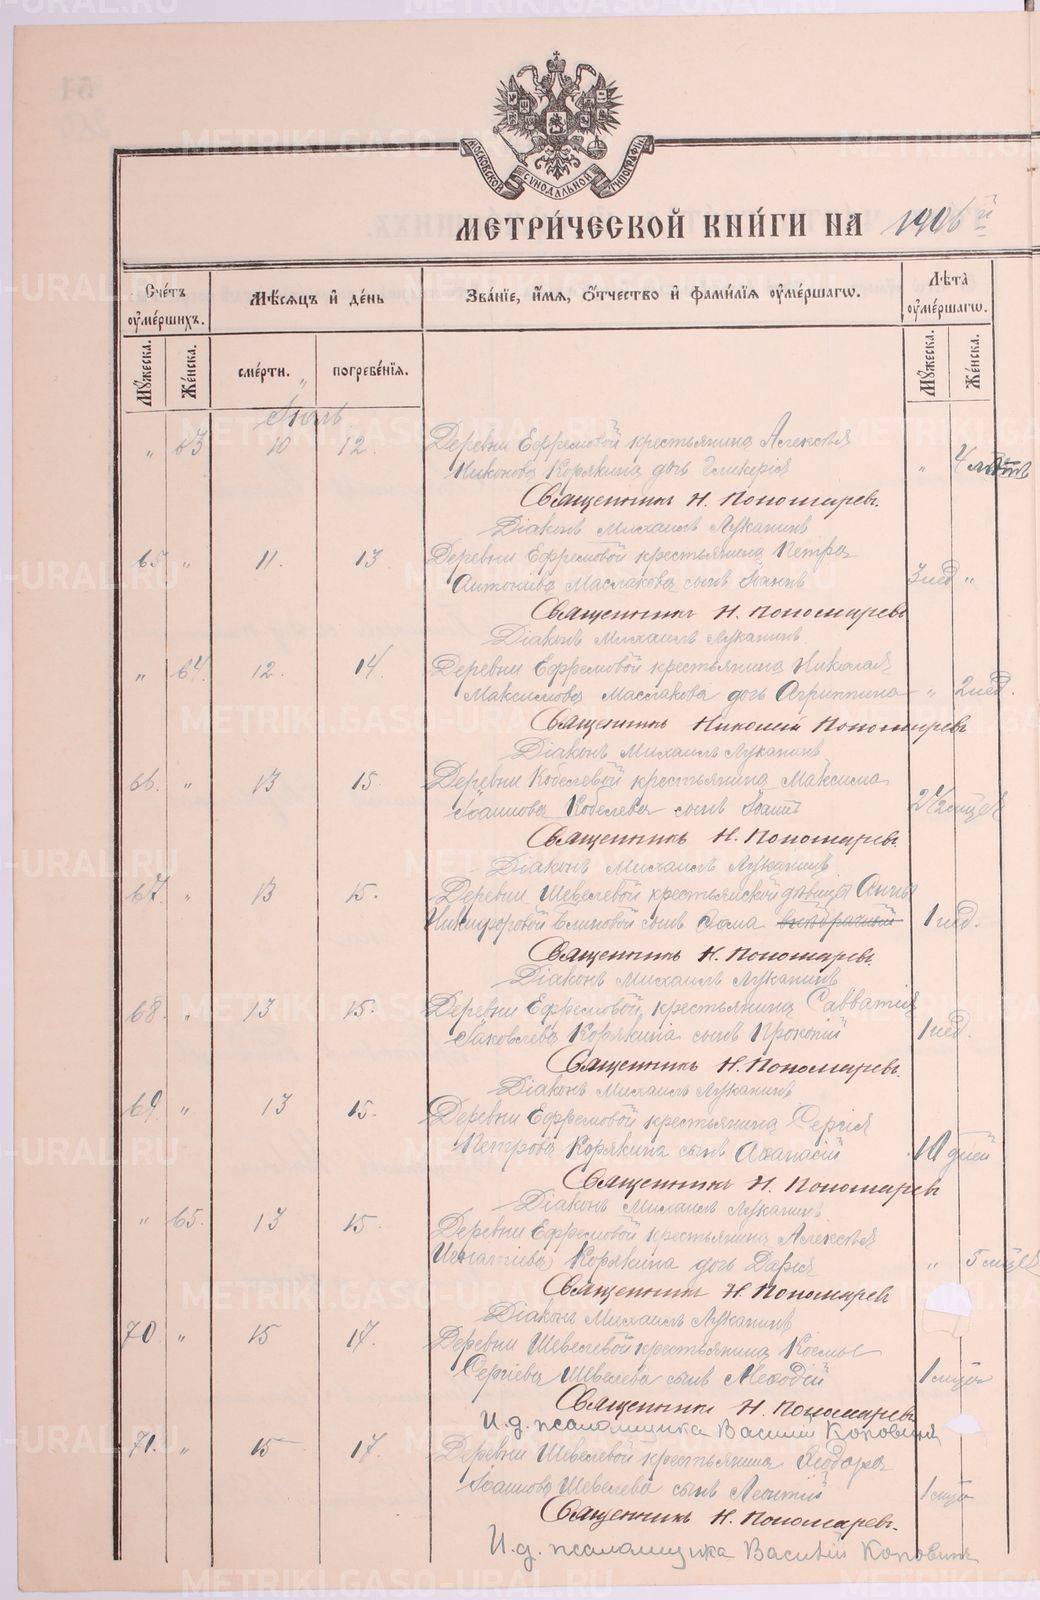 МОСКОВСКОЙ СѴНОДАЛЬНОЙ ТИПОГРАФІИ
МЕТРИ́ЧЕСКОЙ КНИ́ГИ НА 1906 й
Сче́тъ ᲂу҆ме́ршихъ.
Мѣ́сяцъ и҆ де́нь
Зва́нїе, и҆́мѧ, ѻ҆́тчество и҆ фами́лїѧ ᲂу҆ме́ршагѡ.
Лѣ́та ᲂу҆ме́ршагѡ.
Мꙋ́жеска.
Же́нска.
сме́рти.
погребе́нїѧ.
Мꙋ́жеска.
Же́нска.
Іюль
" 63 10 12. Деревни Ефремовой крестьянина Алексѣя
Никонова Корякина дочь Гликерія " 4 лѣтъ
Священникъ Н. Пономаревъ.
Діаконъ Михаилъ Луканинъ
65 " 11. 13 Деревни Ефремовой крестьянина Петра
Антоніева Маслакова сынъ Іоаннъ 3 нед "
Священникъ Н. Пономаревъ
Діаконъ Михаилъ Луканинъ
" 64. 12. 14. Деревни Ефремовой крестьянина Николая
Максимова Маслакова дочь Агриппина " 2 нед.
Священникъ Николай Пономаревъ
Діаконъ Михаилъ Луканинъ
66. " 13 15 Деревни Кобелевой крестьянина Максима
Іоаннова Кобелева сынъ Іоаннъ 2 1/2 мѣсяц
Священникъ Н. Пономаревъ.
Діаконъ Михаилъ Луканинъ
67. " 13 15. Деревни Шевелевой крестьянской дѣвицы Анны
Никифоровой сынъ Ѳома внебрачный 1 нед.
Священникъ Н. Пономаревъ.
Діаконъ Михаилъ Луканинъ
68. " 13 15. Деревни Ефремовой крестьянина Савватія
Іаковлева Корякина сынъ Прокопій 1 нед.
Священникъ Н. Пономаревъ.
Діаконъ Михаилъ Луканинъ
69. " 13 15. Деревни Ефремовой крестьянина Сергія
Петрова Корякина сынъ Аѳанасій 10 дней
Священникъ Н. Пономаревъ
Діаконъ Михаилъ Луканинъ
" 65. 13 15. Деревни Ефремовой крестьянина Алексѣя
Игнатіева Корякина дочь Дарія " 5 мѣсяц
Священникъ Н. Пономаревъ
Діаконъ Михаилъ Луканинъ
70. " 15 17. Деревни Шевелевой крестьянина Космы
Сергіева Шевелева сынъ Меѳодій 1 мѣсяц
Священникъ Н. Пономаревъ
И. д. псаломщика Василій Коповинъ
71. " 15 17. Деревни Шевелевой крестьянина Ѳеодора
Іоаннова Шевелева сынъ Леонтій 1 мѣсяц
Священникъ Н. Пономаревъ.
И. д. псаломщика Василій Коповинъ
METRIKI.GASO-URAL.RU